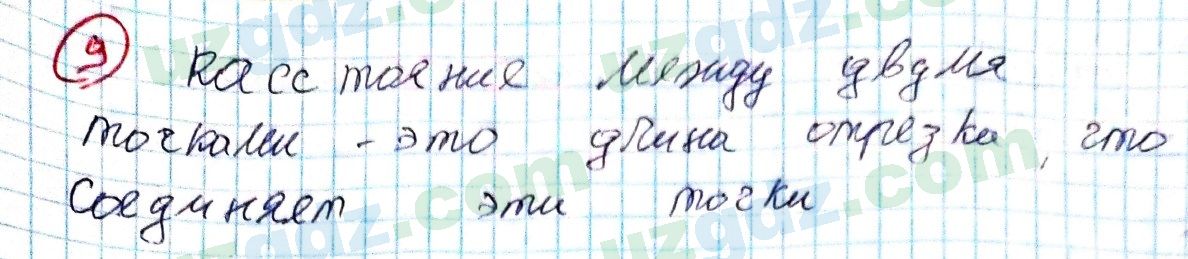 9 Расстояние между двумя
точками - это длина отрезка, что
соединяет эти точки